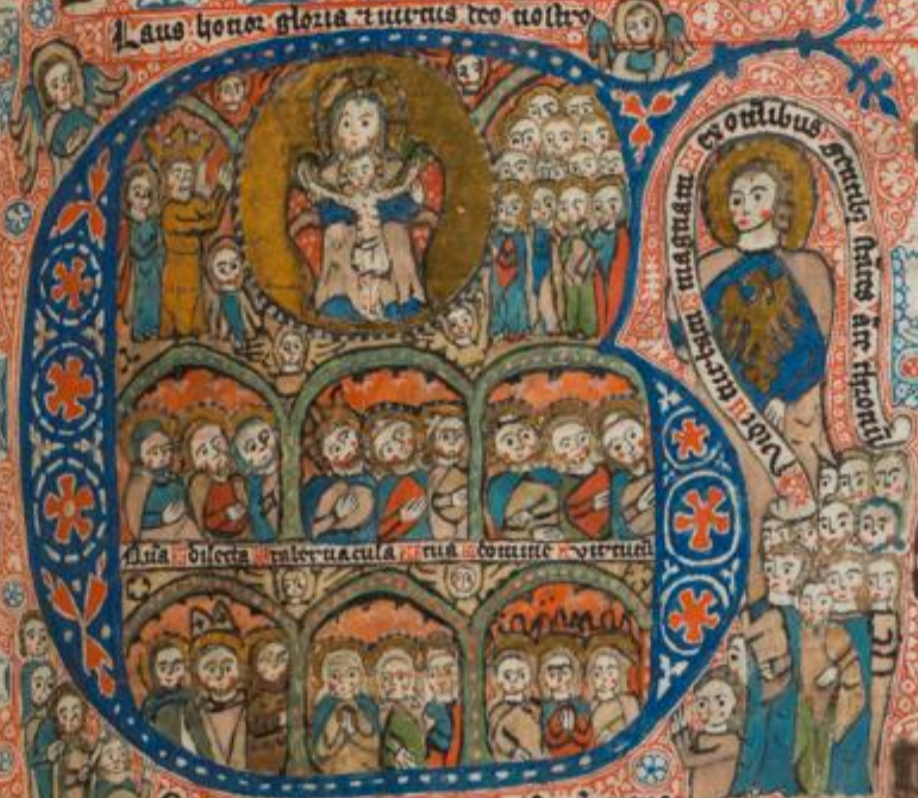 Laus honor gloria ⁊ uirtus deo nostro
Vidi turbam magnam ex oĩibus gentib; stãtes ãte thronũ
Quã dilecta tabernacula tua domine virtutũ